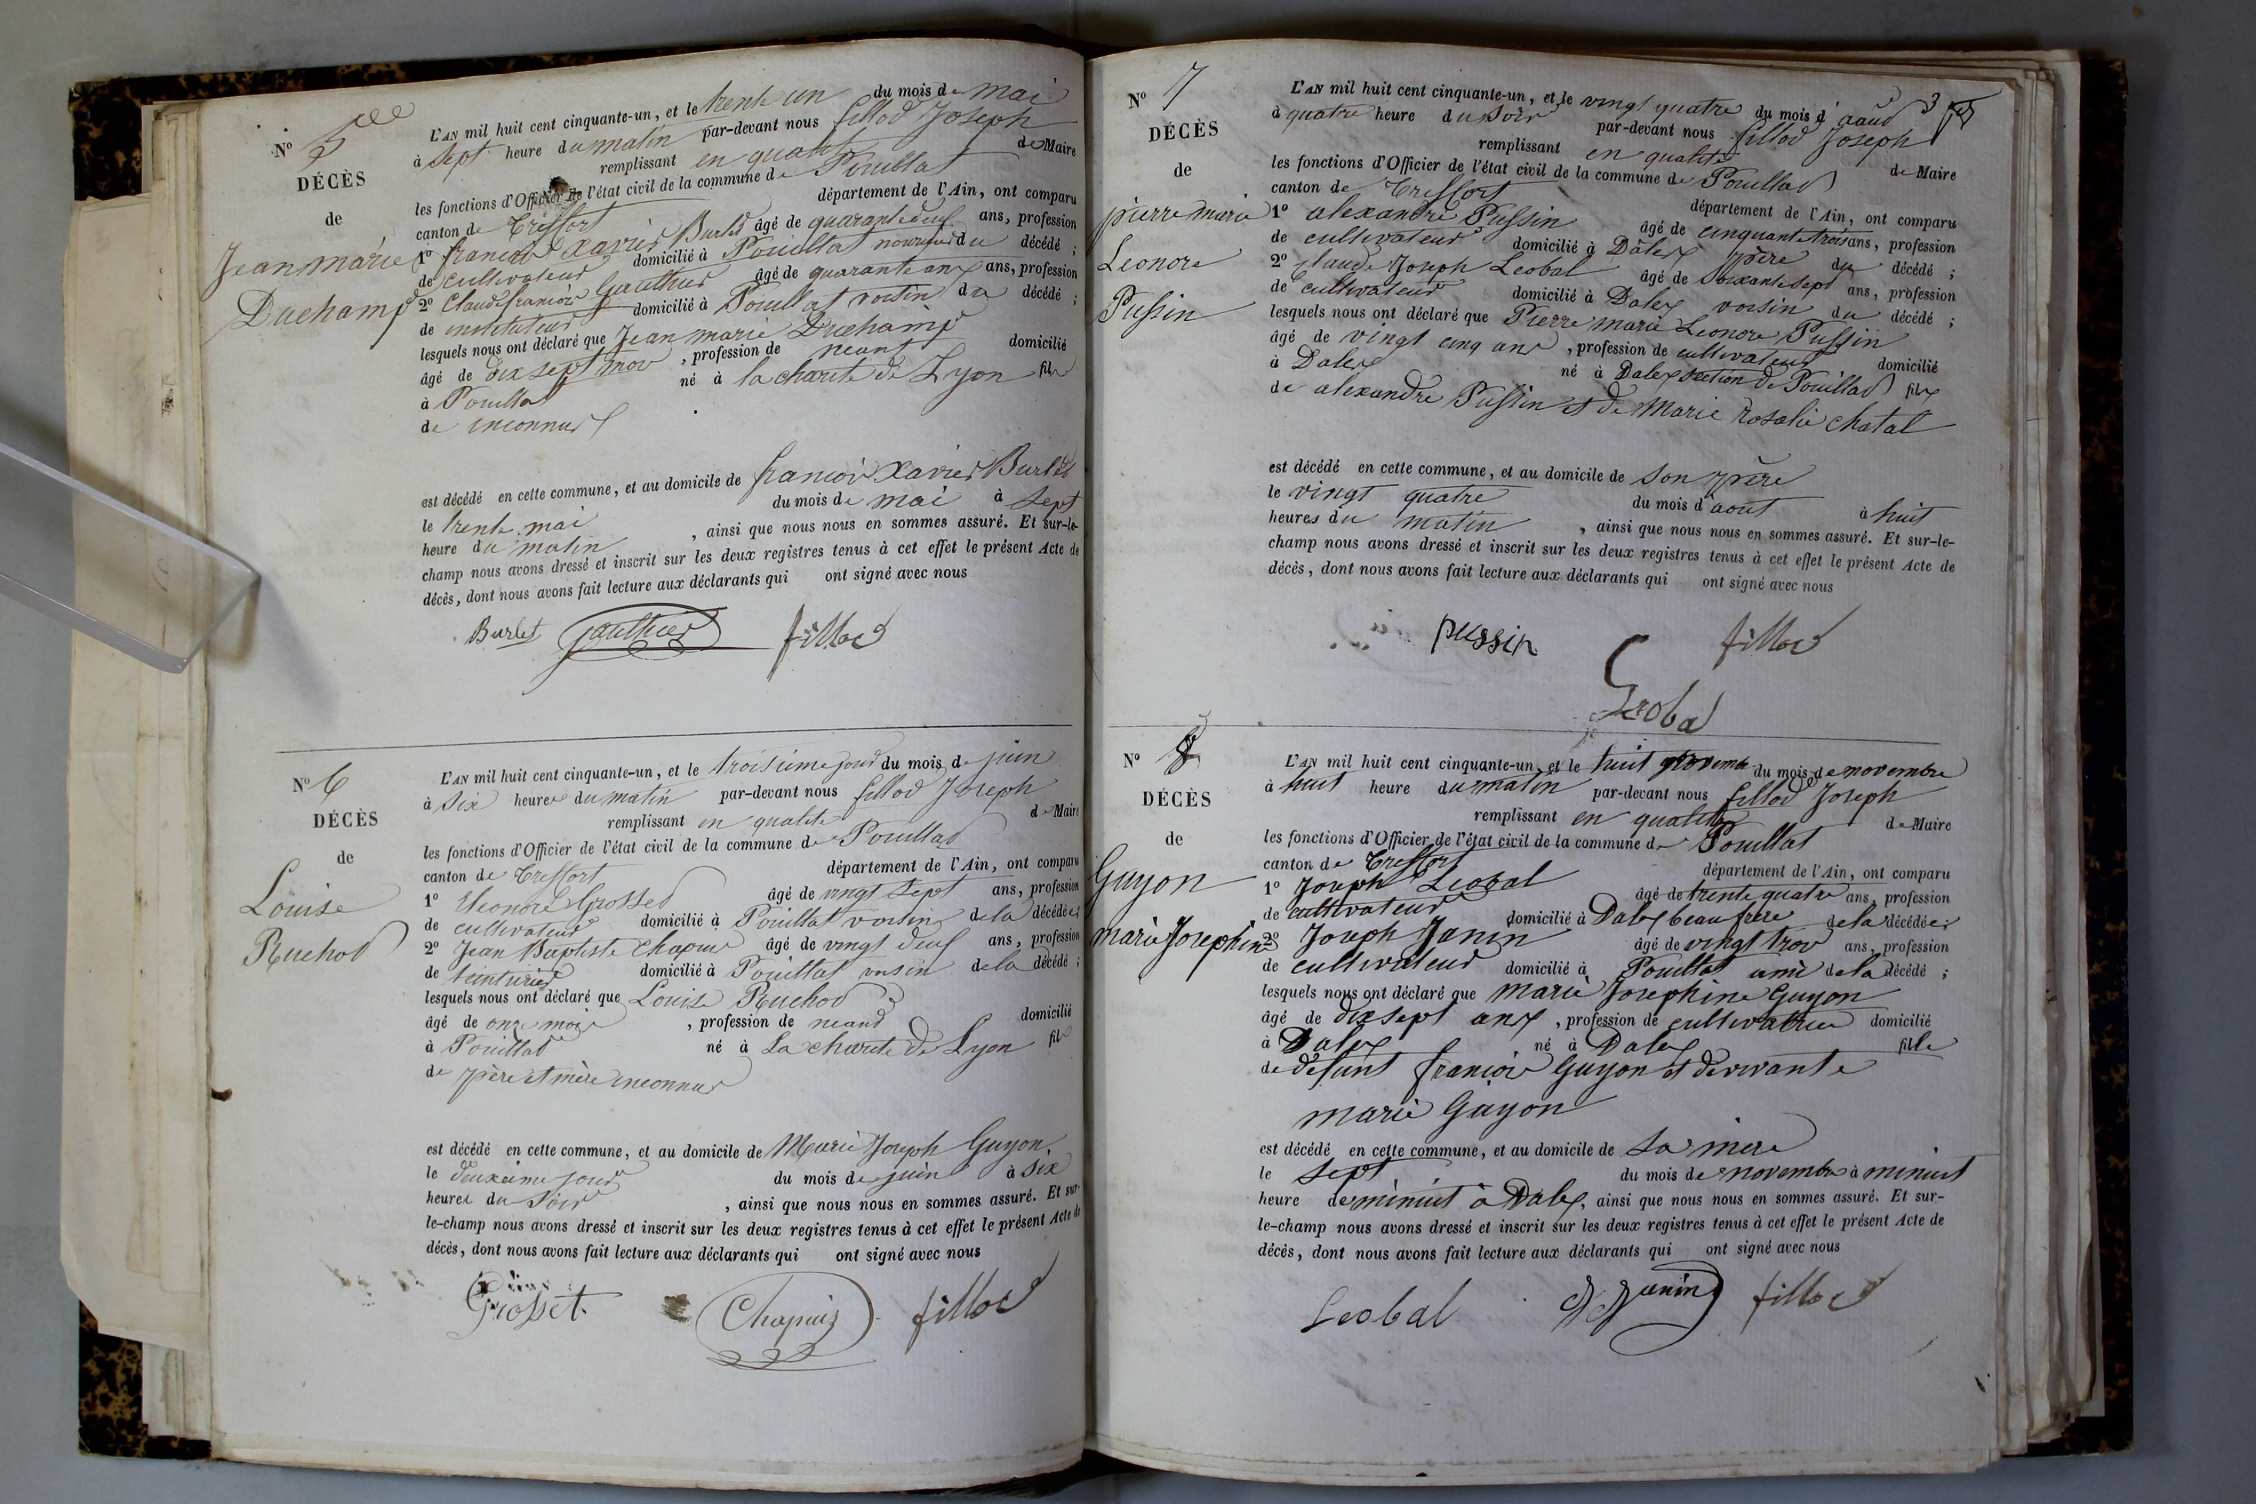 N° 5
DÉCÈS
de
Jean marie
Duchamp
L'AN mil huit cent cinquante-un, et le trente un du mois de mai
à sept heure du matin par-devant nous fillod Joseph
remplissant en qualité de Maire
les fonctions d'Officier de l'état civil de la commune de Pouillat
canton de Treffort département de l'Ain, ont comparu
1° francois Xavier Burlet âgé de quarante deux ans, profession
de cultivateur domicilié à Pouillat nourricier du décédé ;
2° Claude francois Gauthier âgé de quarante ans ans, profession
de instituteur domicilié à Pouillat voisin du décédé ;
lesquels nous ont déclaré que Jean marie Duchamp
âgé de dix sept mois , profession de neant domicilié
à Pouillat né à la charité de Lyon fils
de inconnus
est décédé en cette commune, et au domicile de francois Xavier Burlet
le trente mai du mois de mai à sept
heure du matin , ainsi que nous nous en sommes assuré. Et sur-le-
champ nous avons dressé et inscrit sur les deux registres tenus à cet effet le présent Acte de
décès, dont nous avons fait lecture aux déclarants qui ont signé avec nous
Burlet Gauthier fillod
N° 6
DÉCÈS
de
Louise
Ruchod
L'AN mil huit cent cinquante-un, et le troisieme jour du mois de juin
à six heures du matin par-devant nous fillod Joseph
remplissant en qualité de Maire
les fonctions d'Officier de l'état civil de la commune de Pouillat
canton de Treffort département de l'Ain, ont comparu
1° Eleonore Grosset âgé de vingt sept ans, profession
de cultivateur domicilié à Pouillat voisin de la décédée ;
2° Jean Baptiste Chapuis âgé de vingt deux ans, profession
de teinturier domicilié à Pouillat voisin de la décédé ;
lesquels nous ont déclaré que Louise Ruchod
âgé de onze mois , profession de neant domicilié
à Pouillat né à La charité de Lyon fil
de père et mère inconnus
est décédé en cette commune, et au domicile de Marie Joseph Guyon
le deuxieme jour du mois de juin à six
heures du soir , ainsi que nous nous en sommes assuré. Et sur-
le-champ nous avons dressé et inscrit sur les deux registres tenus à cet effet le présent Acte de
décès, dont nous avons fait lecture aux déclarants qui ont signé avec nous
Grosset Chapuis fillod
N° 7
DÉCÈS
de
pierre marie
Leonore
Pussin
L'AN mil huit cent cinquante-un, et le vingt quatre du mois d'aout
à quatre heure du soir par-devant nous fillod Joseph
remplissant en qualité de Maire
les fonctions d'Officier de l'état civil de la commune de Pouillat
canton de Treffort département de l'Ain, ont comparu
1° alexandre Pussin âgé de cinquante trois ans, profession
de cultivateur domicilié à Dalex père du décédé ;
2° Claude Joseph Leobal âgé de soixante sept ans, profession
de cultivateur domicilié à Dalex voisin du décédé ;
lesquels nous ont déclaré que Pierre marie Leonore Pussin
âgé de vingt cinq ans , profession de cultivateur domicilié
à Dalex né à Dalex section de Pouillat fils
de alexandre Pussin et de Marie rosalie chatal
est décédé en cette commune, et au domicile de son père
le vingt quatre du mois d'aout à huit
heures du matin , ainsi que nous nous en sommes assuré. Et sur-le-
champ nous avons dressé et inscrit sur les deux registres tenus à cet effet le présent Acte de
décès, dont nous avons fait lecture aux déclarants qui ont signé avec nous
pussin fillod
N° 8
DÉCÈS
de
Guyon
marie Josephine
L'AN mil huit cent cinquante-un, et le huit novembre du mois de novembre
à huit heure du matin par-devant nous fillod Joseph
remplissant en qualité de Maire
les fonctions d'Officier de l'état civil de la commune de Pouillat
canton de Treffort département de l'Ain, ont comparu
1° Joseph Leobal âgé de trente quatre ans, profession
de cultivateur domicilié à Dalex beau frere de la décédée ;
2° Joseph Janin âgé de vingt trois ans, profession
de cultivateur domicilié à Pouillat ami de la décédé ;
lesquels nous ont déclaré que marie Josephine Guyon
âgé de dix sept ans , profession de cultivatrice domicilié
à Dalex né à Dalex fille
de défunt francois Guyon et de vivante
marie Guyon
est décédé en cette commune, et au domicile de sa mere
le sept du mois de novembre à minuit
heure de minuit à Dalex, ainsi que nous nous en sommes assuré. Et sur-
le-champ nous avons dressé et inscrit sur les deux registres tenus à cet effet le présent Acte de
décès, dont nous avons fait lecture aux déclarants qui ont signé avec nous
Leobal Janin fillod